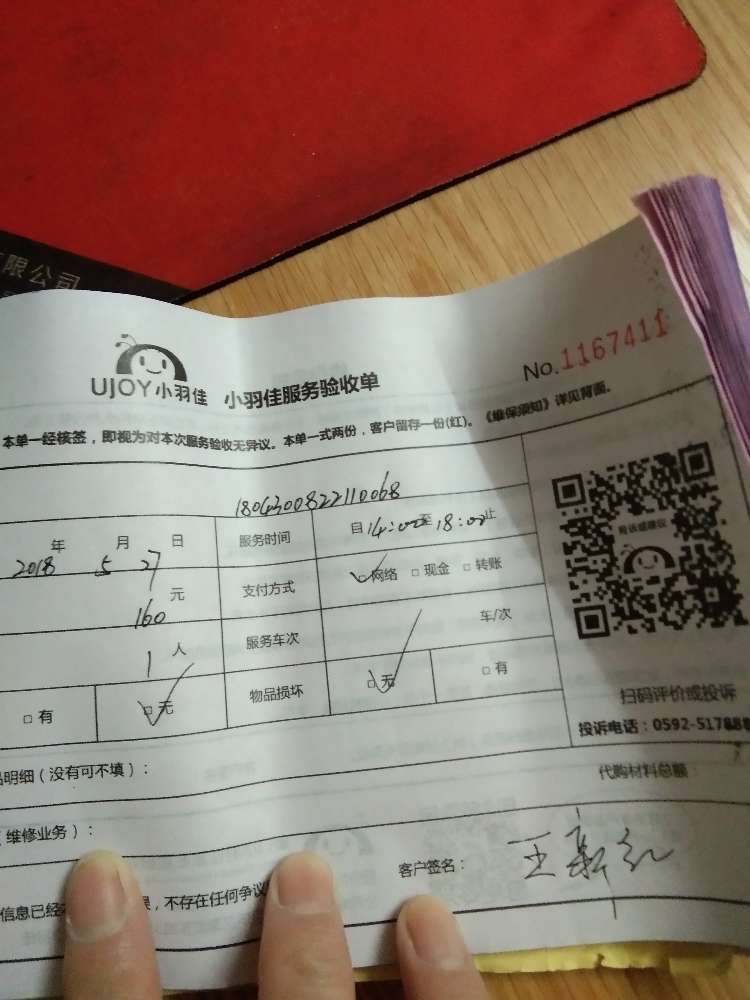 限公司
UJOY小羽佳 小羽佳服务验收单 No.1167411
本单一经核签，即视为对本次服务验收无异议。本单一式两份，客户留存一份(红)。《维保须知》详见背面。
1804300822110068
2018年5月27日 服务时间 自14:00至18:00止
160元 支付方式 □网络 □现金 □转账
1人 服务车次 车/次
□有 □无 物品损坏 □无 □有
扫码评价或投诉
投诉电话：0592-51788
品明细（没有可不填）： 代购材料总额：
（维修业务）：
客户签名：
信息已经 ，不存在任何争议